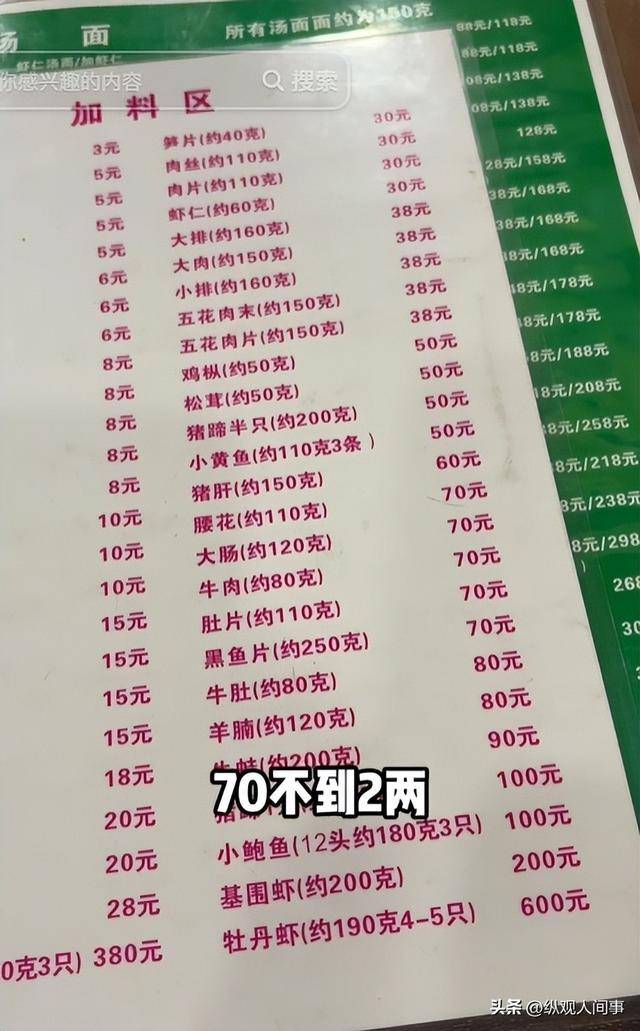 汤 面
所有汤面面约为150克
虾仁汤面/加虾仁
你感兴趣的内容
搜索
加料区
3元
5元
5元
5元
5元
6元
6元
6元
8元
8元
8元
8元
8元
10元
10元
10元
15元
15元
15元
15元
18元
20元
20元
28元
0克3只) 380元
笋片(约40克) 30元
肉丝(约110克) 30元
肉片(约110克) 30元
虾仁(约60克) 30元
大排(约160克) 38元
大肉(约150克) 38元
小排(约160克) 38元
五花肉末(约150克) 38元
五花肉片(约150克) 38元
鸡枞(约50克) 50元
松茸(约50克) 50元
猪蹄半只(约200克) 50元
小黄鱼(约110克3条) 50元
猪肝(约150克) 60元
腰花(约110克) 70元
大肠(约120克) 70元
牛肉(约80克) 70元
肚片(约110克) 70元
黑鱼片(约250克) 70元
牛肚(约80克) 80元
羊腩(约120克) 80元
牛蛙(约200克) 90元
100元
小鲍鱼(12头约180克3只) 100元
基围虾(约200克) 200元
牡丹虾(约190克4-5只) 600元
88元/118元
88元/118元
08元/138元
08元/138元
128元
28元/158元
38元/168元
38元/168元
8元/168元
8元/178元
8元/178元
8元/188元
8元/208元
8元/258元
8元/218元
8元/238元
8元/298元
268
30
70不到2两
头条 @纵观人间事